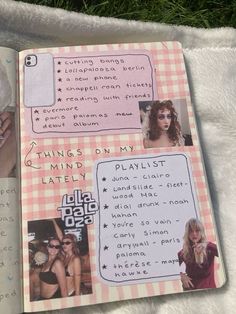 ★ cutting bangs
★ Lollapalooza berlin
★ a new phone
★ chappell roan tickets
★ reading with friends
★ evermore
★ paris palomas new
debut album
THINGS ON MY
MIND
LATELY
PLAYLIST
★ Juna - Clairo
★ Landslide - fleet-
wood mac
★ dial drunk - noah
kahan
★ you're so vain -
carly simon
★ drywall - paris
paloma
★ thérèse - maya
hawke
Lolla
PALO
OZA